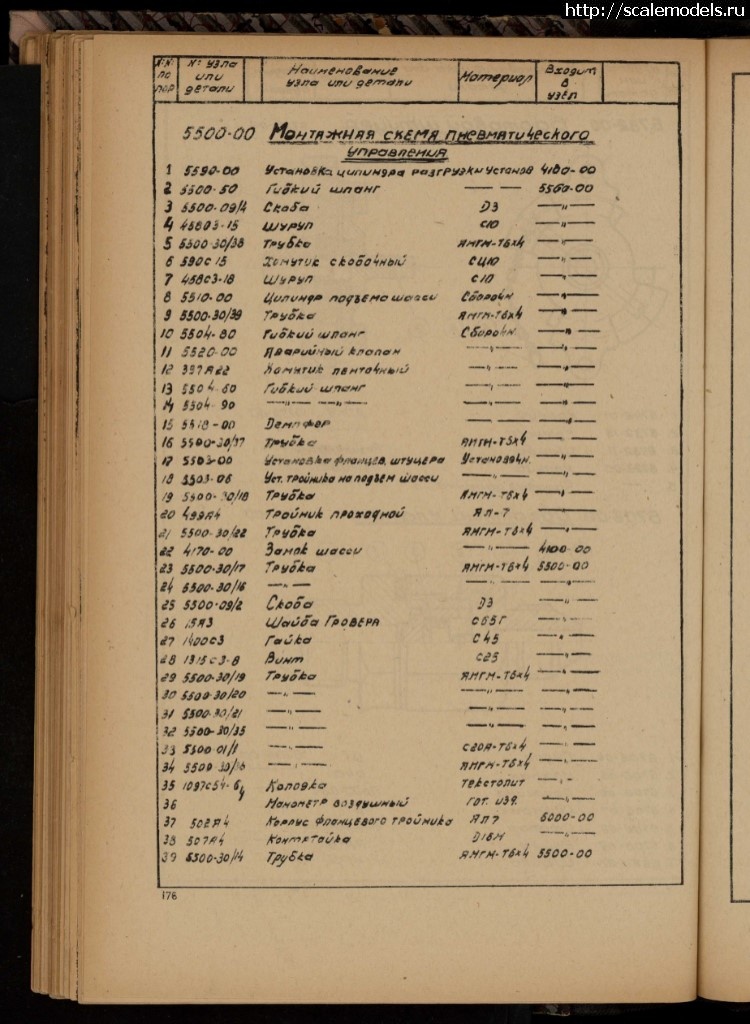 http://scalemodels.ru
№№ по пор № узла или детали Наименование узла или детали Материал Входит в узел
5500-00 Монтажная схема пневматического
управления
1 5590-00 Установка цилиндра разгрузки установ 4180-00
2 5500-50 Гибкий шланг —— —— 5500-00
3 5500-09/4 Скоба Д3 —"—
4 458С3-15 Шуруп С10 —"—
5 5500-30/38 Трубка АМГМ-Т6х4 —"—
6 590С15 Хомутик скобочный СЦ10 —"—
7 458С3-18 Шуруп С10 —"—
8 5510-00 Цилиндр подъема шасси Сборочн —"—
9 5500-30/39 Трубка АМГМ-Т6х4 —"—
10 5504-80 Гибкий шланг Сборочн. —"—
11 5520-00 Аварийный клапан —"— —"—
12 397А22 Хомутик ленточный —"— —"—
13 5504-60 Гибкий шланг —"— —"—
14 5504-90 —"— —"— —"— —"—
15 5518-00 Демпфер —— —"—
16 5500-30/37 Трубка АМГМ-Т6х4 —"—
17 5503-00 Установка фланцев. штуцера Установочн. —"—
18 5503-06 Уст. тройника на подъем шасси —"— —"—
19 5500-30/18 Трубка АМГМ-Т6х4 —"—
20 499А4 Тройник проходной АЛ-7 —"—
21 5500-30/22 Трубка АМГМ-Т6х4 —"—
22 4170-00 Замок шасси —"— 4100-00
23 5500-30/17 Трубка АМГМ-Т6х4 5500-00
24 5500-30/16 —"— —"— —"—
25 5500-09/2 Скоба Д3 —"—
26 15А3 Шайба Гровера С65Г —"—
27 1400С3 Гайка С45 —"—
28 1315С3-8 Винт С25 —"—
29 5500-30/19 Трубка АМГМ-Т6х4 —"—
30 5500-30/20 —"— —"— —"—
31 5500-30/21 —"— —"— —"—
32 5500-30/35 —"— —"— —"—
33 5500-01/1 —"— С20А-Т6х4 —"—
34 5500-30/ —"— АМГМ-Т6х4 —"—
35 1097С54- Колодка Текстолит —"—
36 Манометр воздушный гот. изд. —"—
37 502А4 Корпус фланцевого тройника АЛ7 6000-00
38 507А4 Контргайка Д16М —"—
39 5500-30/14 Трубка АМГМ-Т6х4 5500-00
176